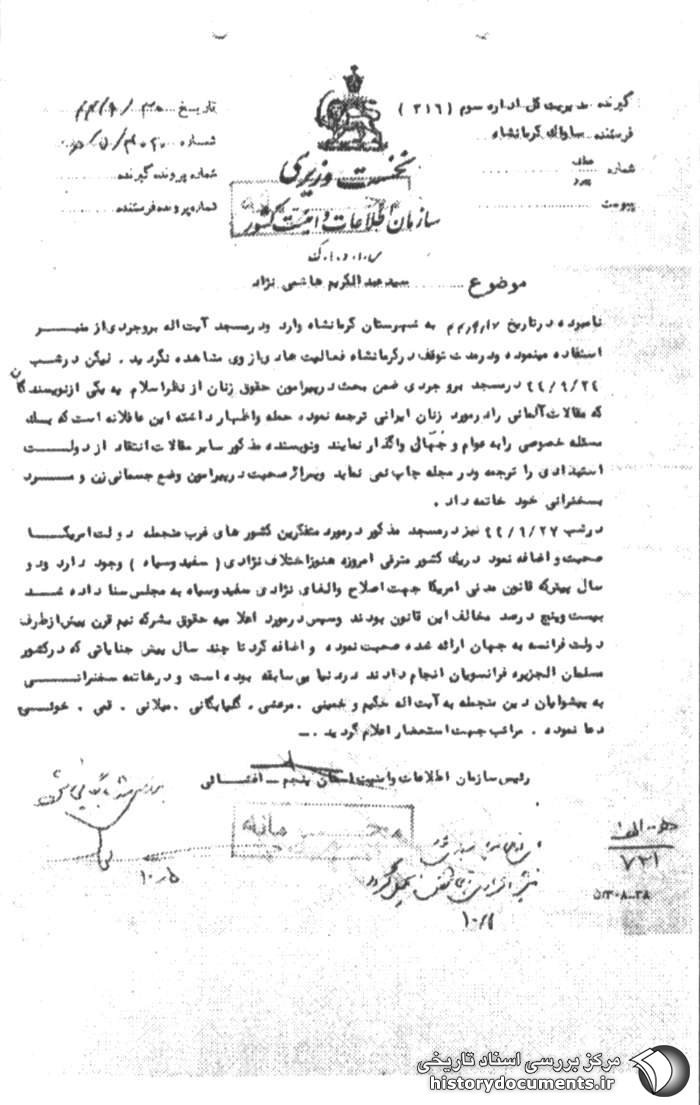 گیرنده مدیریت کل اداره سوم ( ۳۱۶ )
فرستنده ساواک کرمانشاه
شماره عطف پیرو
پیوست
تاریخ ۴۴/۹/۳۰
شماره
شماره پرونده گیرنده
شماره پرونده فرستنده
نخست وزیری
سازمان اطلاعات و امنیت کشور
س.ا.و.ا.ک
موضوع سید عبدالکریم هاشمی نژاد
نامبرده در تاریخ ۴۴/۹/۱۷ به شهرستان کرمانشاه وارد و در مسجد آیت اله بروجردی از منبر
استفاده مینموده و در مدت توقف در کرمانشاه فعالیت حادی از وی مشاهده نگردید . لیکن در شب
۴۴/۹/۲۴ در مسجد بروجردی ضمن بحث در پیرامون حقوق زنان از نظر اسلام به یکی از نویسندگان
که مقالات آلمانی را در مورد زنان ایرانی ترجمه نموده حمله و اظهار داشته این عاقلانه است که یک
مسئله خصوصی را به عوام و جهال واگذار نمایند و نویسنده مذکور سایر مقالات انتقاد از دولت
استبدادی را ترجمه و در مجله چاپ نمی نماید و پس از صحبت در پیرامون وضع جسمانی زن و مرد
بسخنرانی خود خاتمه داد .
در شب ۴۴/۹/۲۷ نیز در مسجد مذکور در مورد متفکرین کشور های غرب منجمله دولت امریکا
صحبت و اضافه نمود در یک کشور مترقی امروزه هنوز اختلاف نژادی ( سفید و سیاه ) وجود دارد و دو
سال پیش که قانون مدنی امریکا جهت اصلاح و الغای نژادی سفید و سیاه به مجلس سنا داده شد
بیست و پنج درصد مخالف این قانون بودند و سپس در مورد اعلامیه حقوق بشر که نیم قرن پیش از طرف
دولت فرانسه به جهان ارائه شده صحبت نموده و اضافه کرد تا چند سال پیش جنایاتی که در کشور
مسلمان الجزیره فرانسویان انجام دادند در دنیا بی سابقه بوده است و در خاتمه سخنرانی
به پیشوایان دین منجمله به آیت اله حکیم و خمینی . مرعشی . گلپایگانی . میلانی . قمی . خوئی
دعا نموده . مراتب جهت استحضار اعلام گردید . ــ
رئیس سازمان اطلاعات و امنیت استان پنجم ــ افتسالی
محرمانه
۱۰/۵
۱۰/۱
هـ الف
۷۲۱
مرکز بررسی اسناد تاریخی
historydocuments.ir